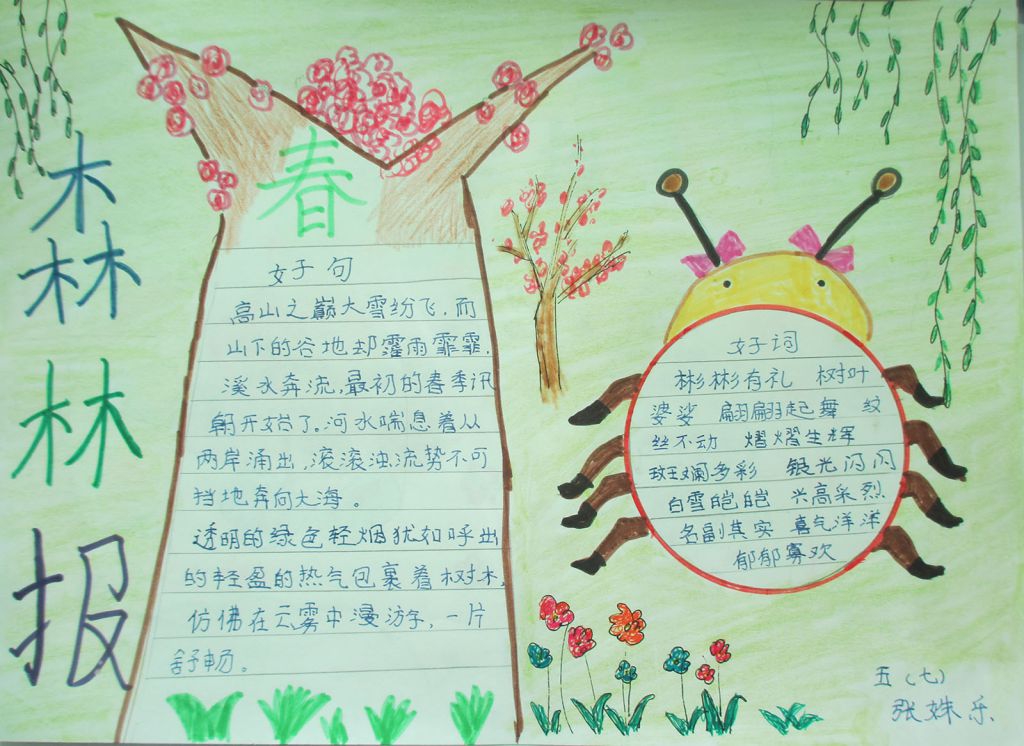 森林报
春
好句
高山之巅大雪纷飞,而
山下的谷地却霪雨霏霏,
溪水奔流,最初的春季汛
期开始了。河水喘息着从
两岸涌出,滚滚浊流势不可
挡地奔向大海。
透明的绿色轻烟犹如呼出
的轻盈的热气包裹着树木,
仿佛在云雾中漫游,一片
舒畅。
好词
彬彬有礼 树叶
婆娑 翩翩起舞 纹
丝不动 熠熠生辉
斑斓多彩 银光闪闪
白雪皑皑 兴高采烈
名副其实 喜气洋洋
郁郁寡欢
五(七)
张姝乐